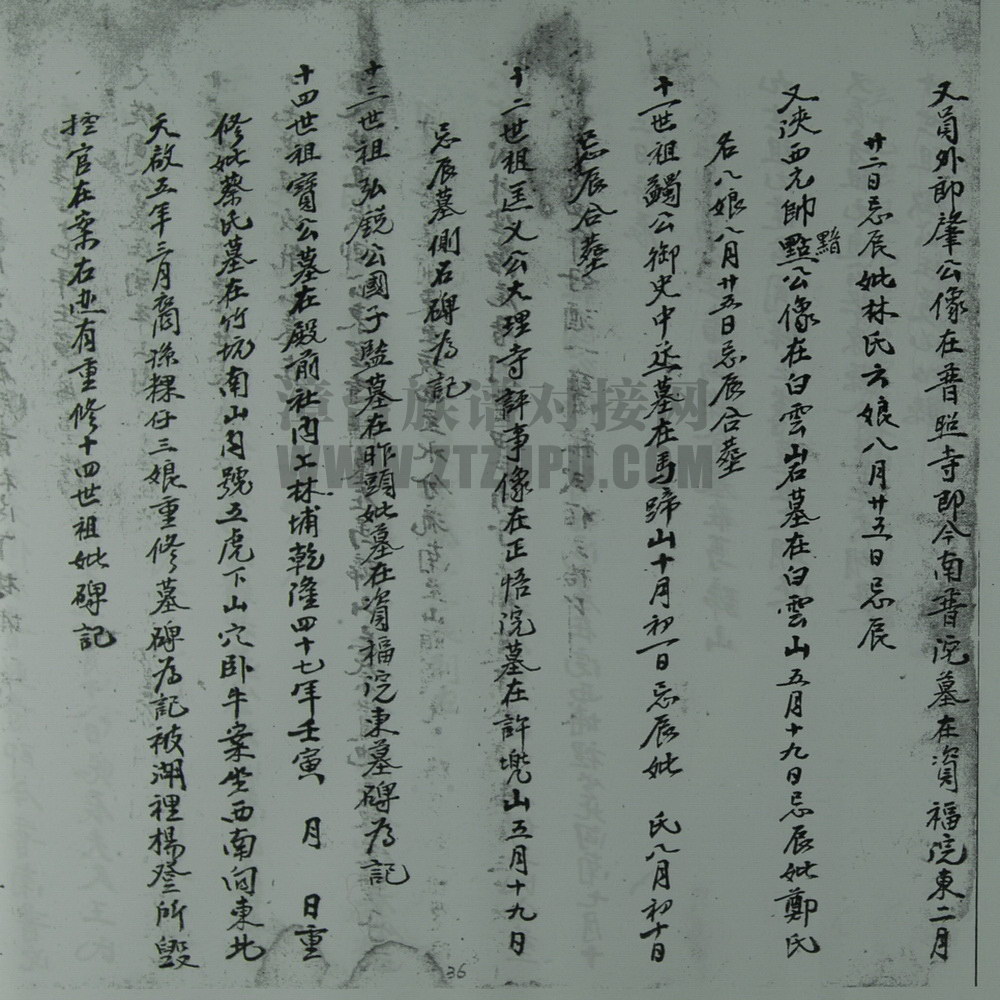 又員外郎肇公像在普照寺即今南普院墓在資福院東二月
廿二日忌辰妣林氏六娘八月廿五日忌辰
又陝西元帥點公像在白雲岩墓在白雲山五月十九日忌辰妣鄭氏
黯
名八娘八月廿五日忌辰合墓
十一世祖蠲公御史中丞墓在馬蹄山十月初一日忌辰妣 氏八月初十日
忌辰合墓
十二世祖匡乂公大理寺評事像在正悟院墓在許垅山五月十九日
忌辰墓側石碑為記
十三世祖弘鋭公國子監墓在昨頭妣墓在資福院東墓碑為記
十四世祖寶公墓在殿前社內上林埔乾隆四十七年壬寅 月 日重
修妣蔡氏墓在竹坑南山內號五虎下山穴臥牛案坐西南向東北
天啟五年三月裔孫粿仔三娘重修墓碑為記被湖裡楊登所毀
控官在案右迹有重修十四世祖妣碑記
漳台族谱对接网
WWW.ZTZUPU.COM
36